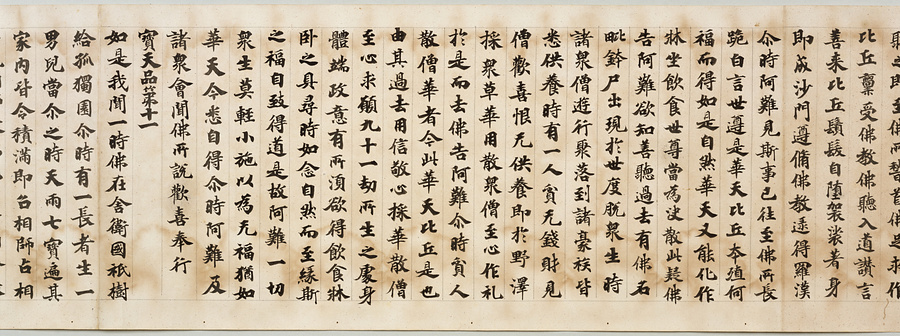 之即至佛所䭫首佛足求作
比丘稟受佛教佛聽入道讚言
善來比丘鬚髮自墮袈裟著身
即成沙門遵脩佛教逮得羅漢
尒時阿難見斯事已往至佛所長
跪白言世尊是華天比丘本殖何
福而得如是自然華天又能化作
牀坐飲食世尊當為決散此疑佛
告阿難欲知善聽過去有佛名
毗鉢尸出現於世度脫眾生時
諸眾僧遊行聚落到諸豪族皆
悉供養時有一人貧无錢財見
僧歡喜恨无供養即於野澤
採眾草華用散眾僧至心作礼
於是而去佛告阿難尒時貧人
散僧華者今此華天比丘是也
由其過去用信敬心採華散僧
至心求願九十一劫所生之處身
體端政意有所須欲得飲食牀
卧之具尋時如念自然而至緣斯
之福自致得道是故阿難一切
眾生莫輕小施以為无福猶如
華天今悉自得尒時阿難及
諸眾會聞佛所說歡喜奉行
寶天品第十一
如是我聞一時佛在舍衛國祇樹
給孤獨園尒時有一長者生一
男兒當尒之時天雨七寶遍其
家內皆令積滿即召相師占相